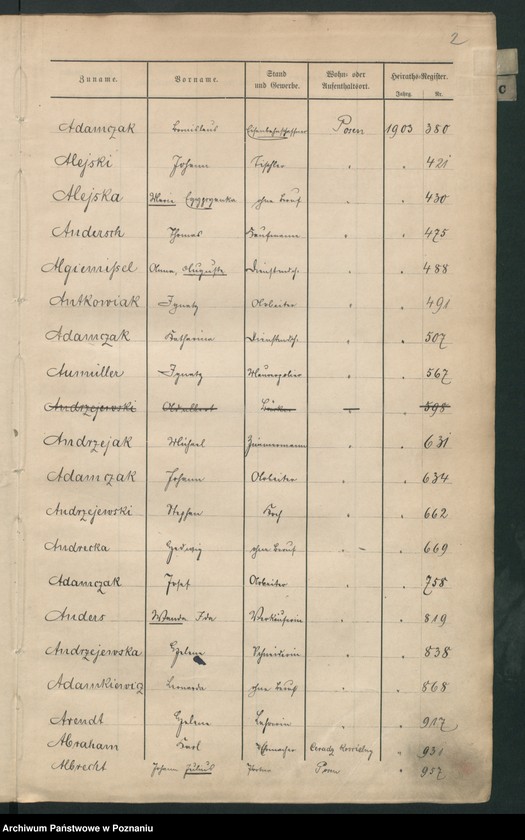 2
Zuname. Vorname. Stand und Gewerbe. Wohn- oder Aufenthaltsort. Heiraths-Register.
Jahrg. Nr.
C
Adamczak Bronislaus Posen 1903 380
Alejski Johann Tischler " " 421
Alejska Maria ohne Beruf " " 430
Andersch Thomas Kaufmann " " 475
Algiemissel Anna, Auguste Dienstmdch. " " 488
Antkowiak Ignatz Arbeiter " " 491
Adamczak Katharina Dienstmdch. " " 507
Aumüller Ignatz " " 567
Andrzejewski Adalbert 598
Andrzejak Michael Zimmermann " " 631
Adamczak Johann Arbeiter " " 634
Andrzejewski Stephan Koch " " 662
Andrecka Hedwig ohne Beruf " " 669
Adamczak Josef Arbeiter " " 758
Anders Wanda Ida Verkäuferin " " 819
Andrzejewska Helene Schneiderin " " 838
Adamkiewicz Leonarda ohne Beruf " " 868
Arendt Helene Lehrerin " " 917
Abraham Karl " 931
Albrecht Johann Julius Posen " 957
Archiwum Państwowe w Poznaniu